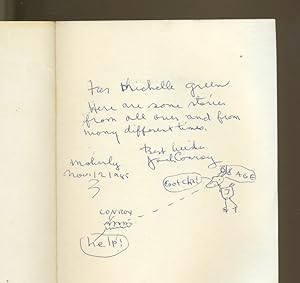 For Michelle Green
Here are some stories
from all over and from
many different times.
Best wishes
Jack Conroy
Moberly
Nov. 12 1985
Gotcha!
AGE
CONROY
help!